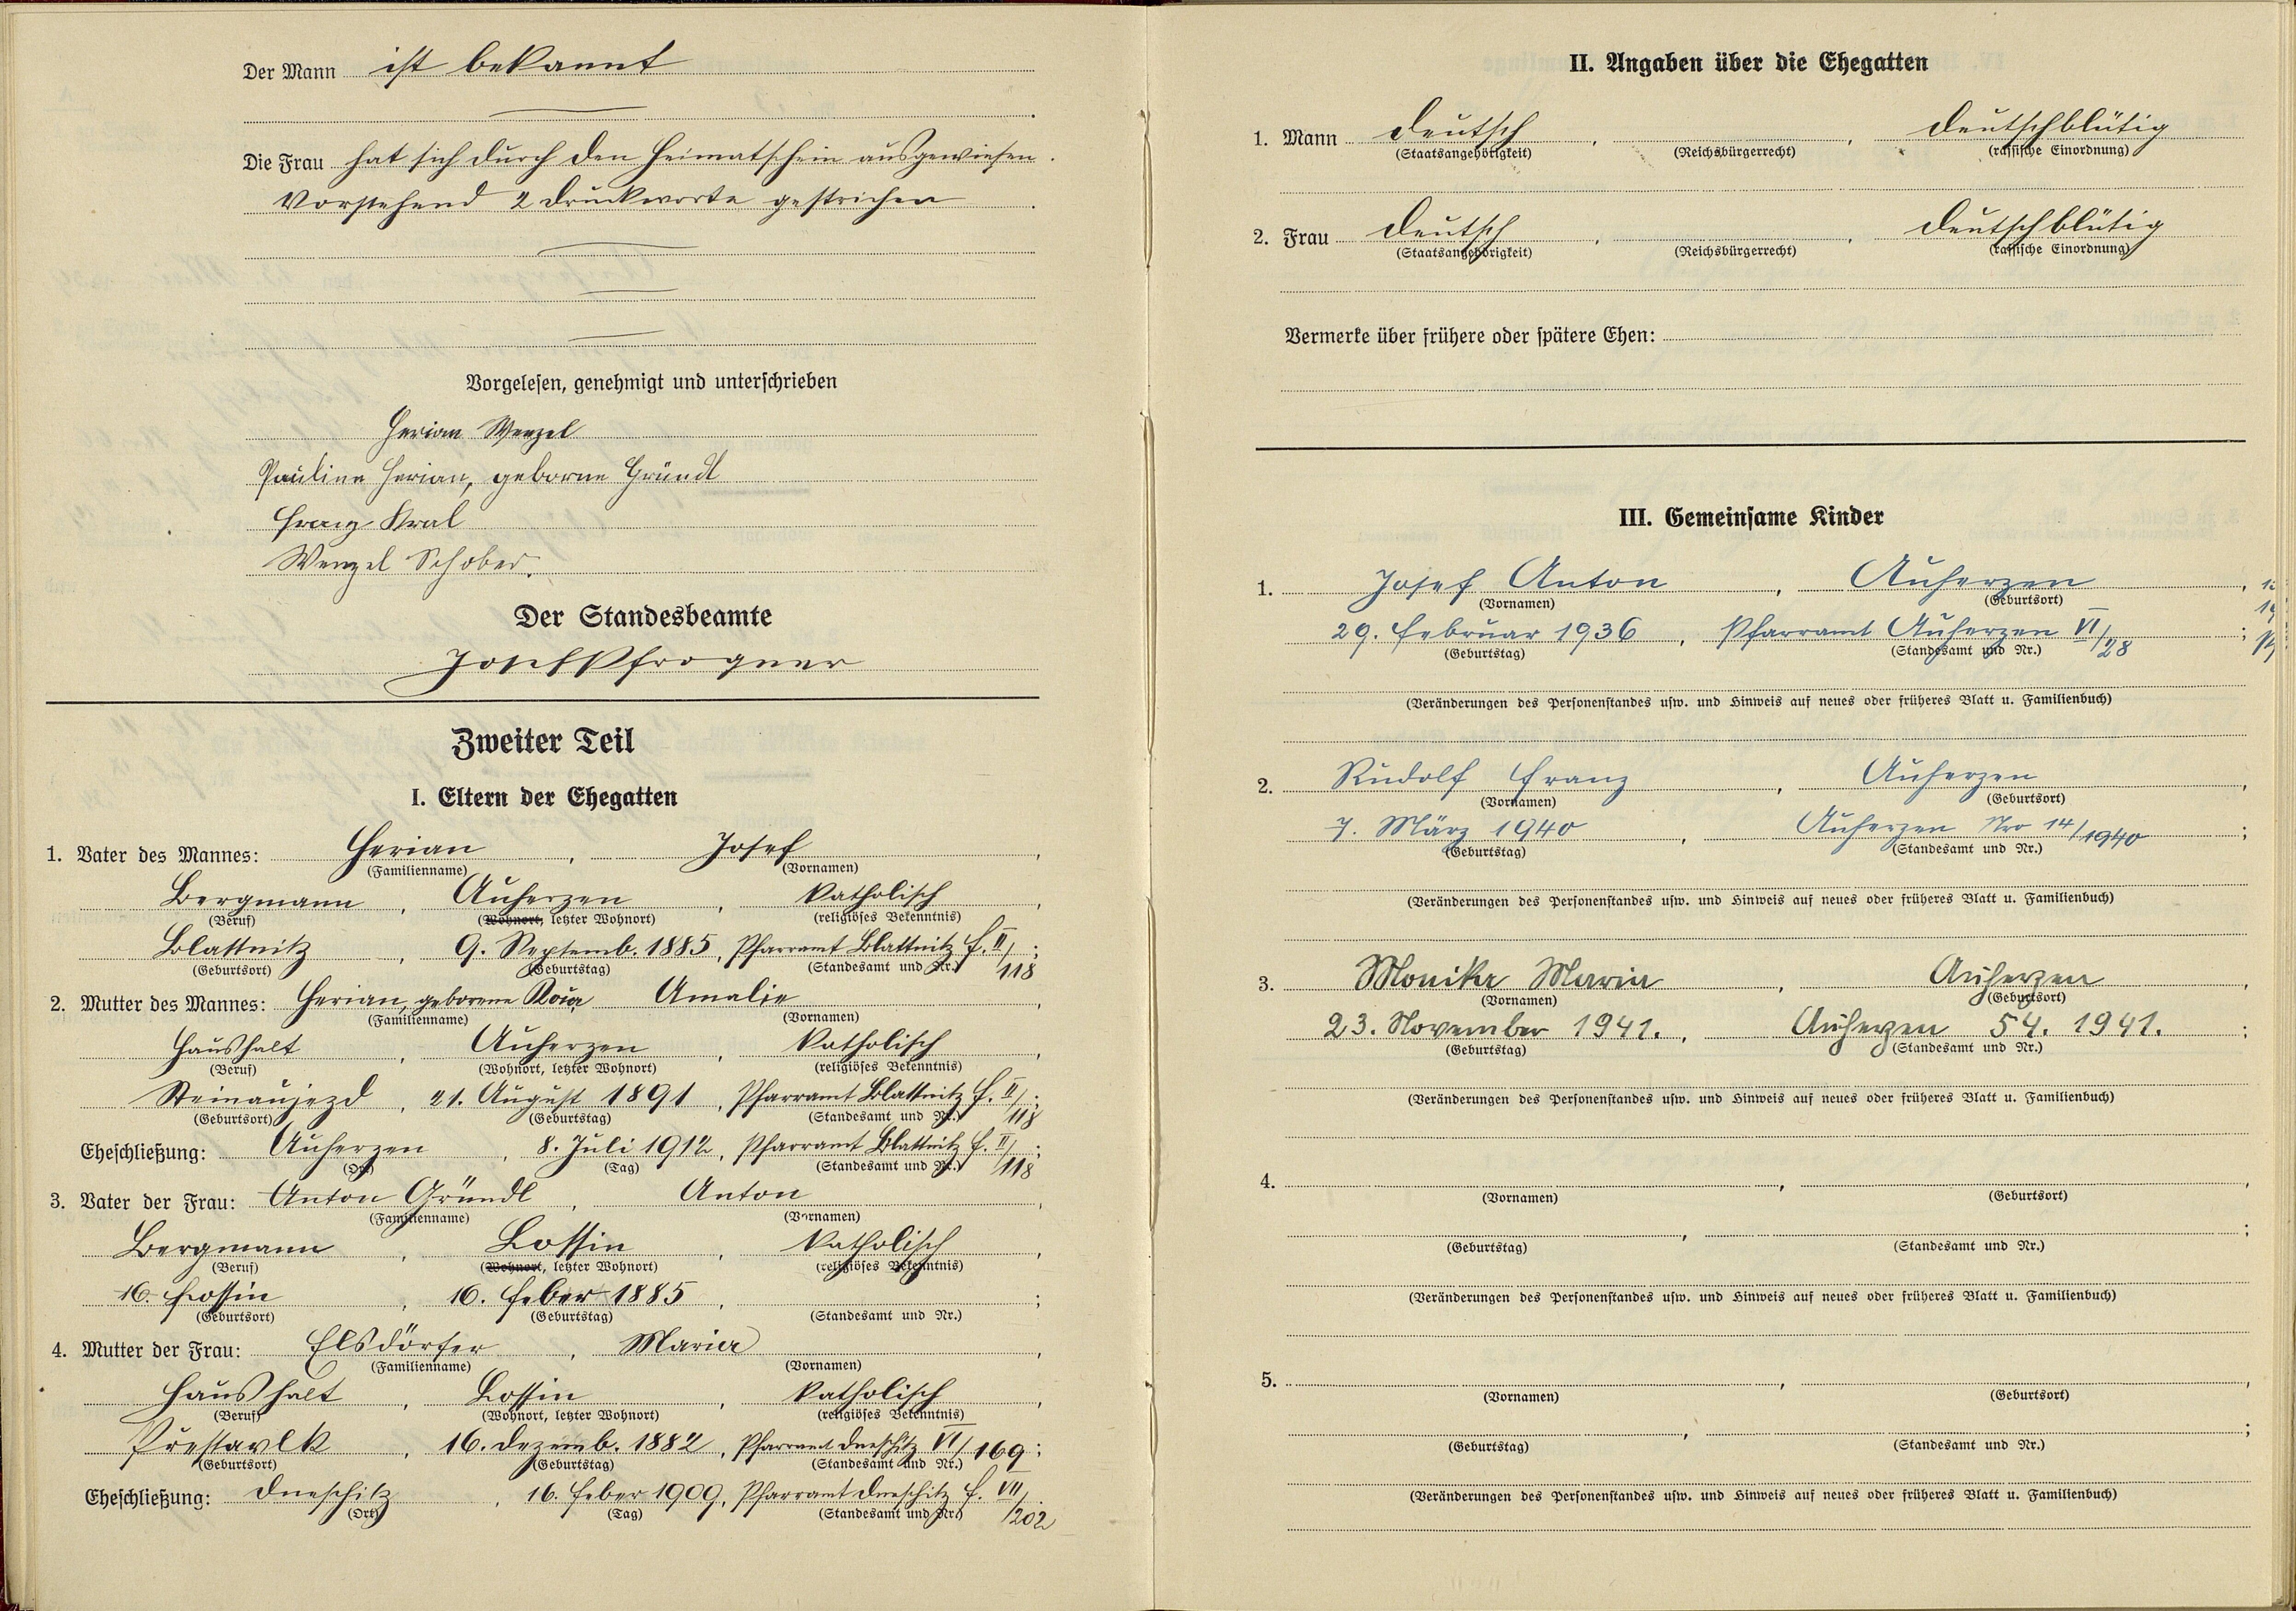 Der Mann ist bekannt
Die Frau hat sich durch den Heimatschein ausgewiesen.
Vorstehend 2 Druckworte gestrichen
Vorgelesen, genehmigt und unterschrieben
Herian Wenzel
Pauline Herian, geborne Gründl
Franz Kral
Wenzel Schober.
Der Standesbeamte
Josef Pfrogner
Zweiter Teil
I. Eltern der Ehegatten
1. Vater des Mannes: Herian, Josef,
(Familienname) (Vornamen)
Bergmann, Auherzen, katholisch,
(Beruf) (Wohnort, letzter Wohnort) (religiöses Bekenntnis)
Blattnitz, 9. Septemb. 1885, Pfarramt Blattnitz f. II/118;
(Geburtsort) (Geburtstag) (Standesamt und Nr.)
2. Mutter des Mannes: Herian, geborene Amalie,
(Familienname) (Vornamen)
Haushalt, Auherzen, katholisch,
(Beruf) (Wohnort, letzter Wohnort) (religiöses Bekenntnis)
Steinaujezd, 21. August 1891, Pfarramt Blattnitz f. II/118;
(Geburtsort) (Geburtstag) (Standesamt und Nr.)
Eheschließung: Auherzen, 8. Juli 1912, Pfarramt Blattnitz f. II/118;
(Ort) (Tag) (Standesamt und Nr.)
3. Vater der Frau: Anton Gründl, Anton,
(Familienname) (Vornamen)
Bergmann, Lossin, katholisch,
(Beruf) (Wohnort, letzter Wohnort) (religiöses Bekenntnis)
16. Lossin, 16. Feber 1885,;
(Geburtsort) (Geburtstag) (Standesamt und Nr.)
4. Mutter der Frau: Elsdörfer, Maria,
(Familienname) (Vornamen)
Haushalt, Lossin, katholisch,
(Beruf) (Wohnort, letzter Wohnort) (religiöses Bekenntnis)
Přestavlk, 16. Dezemb. 1882, Pfarramt Dneschitz VI/169;
(Geburtsort) (Geburtstag) (Standesamt und Nr.)
Eheschließung: Dneschitz, 16. Feber 1909, Pfarramt Dneschitz f. VII/202
(Ort) (Tag) (Standesamt und Nr.)
II. Angaben über die Ehegatten
1. Mann Deutsch, , Deutschblütig
(Staatsangehörigkeit) (Reichsbürgerrecht) (rassische Einordnung)
2. Frau Deutsch, , Deutschblütig
(Staatsangehörigkeit) (Reichsbürgerrecht) (rassische Einordnung)
Vermerke über frühere oder spätere Ehen:
III. Gemeinsame Kinder
1. Josef Anton, Auherzen,
(Vornamen) (Geburtsort)
29. Februar 1936, Pfarramt Auherzen VI/28;
(Geburtstag) (Standesamt und Nr.)
(Veränderungen des Personenstandes usw. und Hinweis auf neues oder früheres Blatt u. Familienbuch)
2. Rudolf Franz, Auherzen,
(Vornamen) (Geburtsort)
7. März 1940, Auherzen Nro 14/1940;
(Geburtstag) (Standesamt und Nr.)
(Veränderungen des Personenstandes usw. und Hinweis auf neues oder früheres Blatt u. Familienbuch)
3. Monika Maria, Auherzen,
(Vornamen) (Geburtsort)
23. November 1941., Auherzen 54. 1941.;
(Geburtstag) (Standesamt und Nr.)
(Veränderungen des Personenstandes usw. und Hinweis auf neues oder früheres Blatt u. Familienbuch)
4. , ,
(Vornamen) (Geburtsort)
, ;
(Geburtstag) (Standesamt und Nr.)
(Veränderungen des Personenstandes usw. und Hinweis auf neues oder früheres Blatt u. Familienbuch)
5. , ,
(Vornamen) (Geburtsort)
, ;
(Geburtstag) (Standesamt und Nr.)
(Veränderungen des Personenstandes usw. und Hinweis auf neues oder früheres Blatt u. Familienbuch)